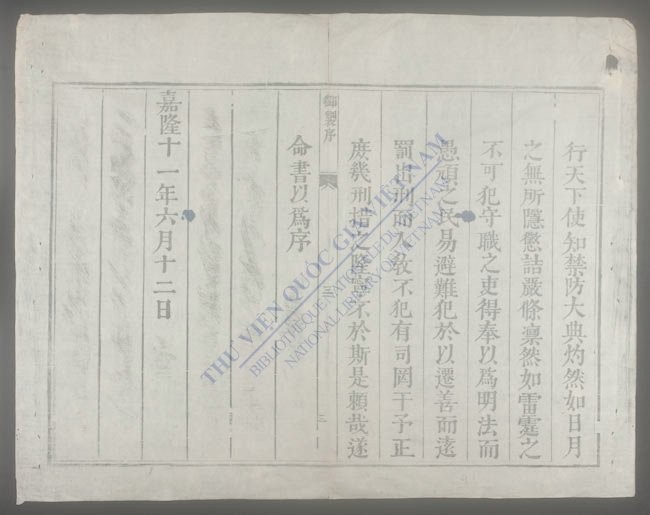 行天下使知禁防大典灼然如日月
之無所隱懲詰嚴條凛然如雷霆之
不可犯守職之吏得奉以爲明法而
愚頑之民易避難犯於以遷善而遠
罰出刑而入教不犯有司罔干予正
庶幾刑措之隆寔不於斯是賴哉遂
命書以爲序
御製序
三
嘉隆十一年六月十二日
THƯ VIỆN QUỐC GIA VIỆT NAM
BIBLIOTHÈQUE NATIONALE DU VIETNAM
NATIONAL LIBRARY OF VIETNAM